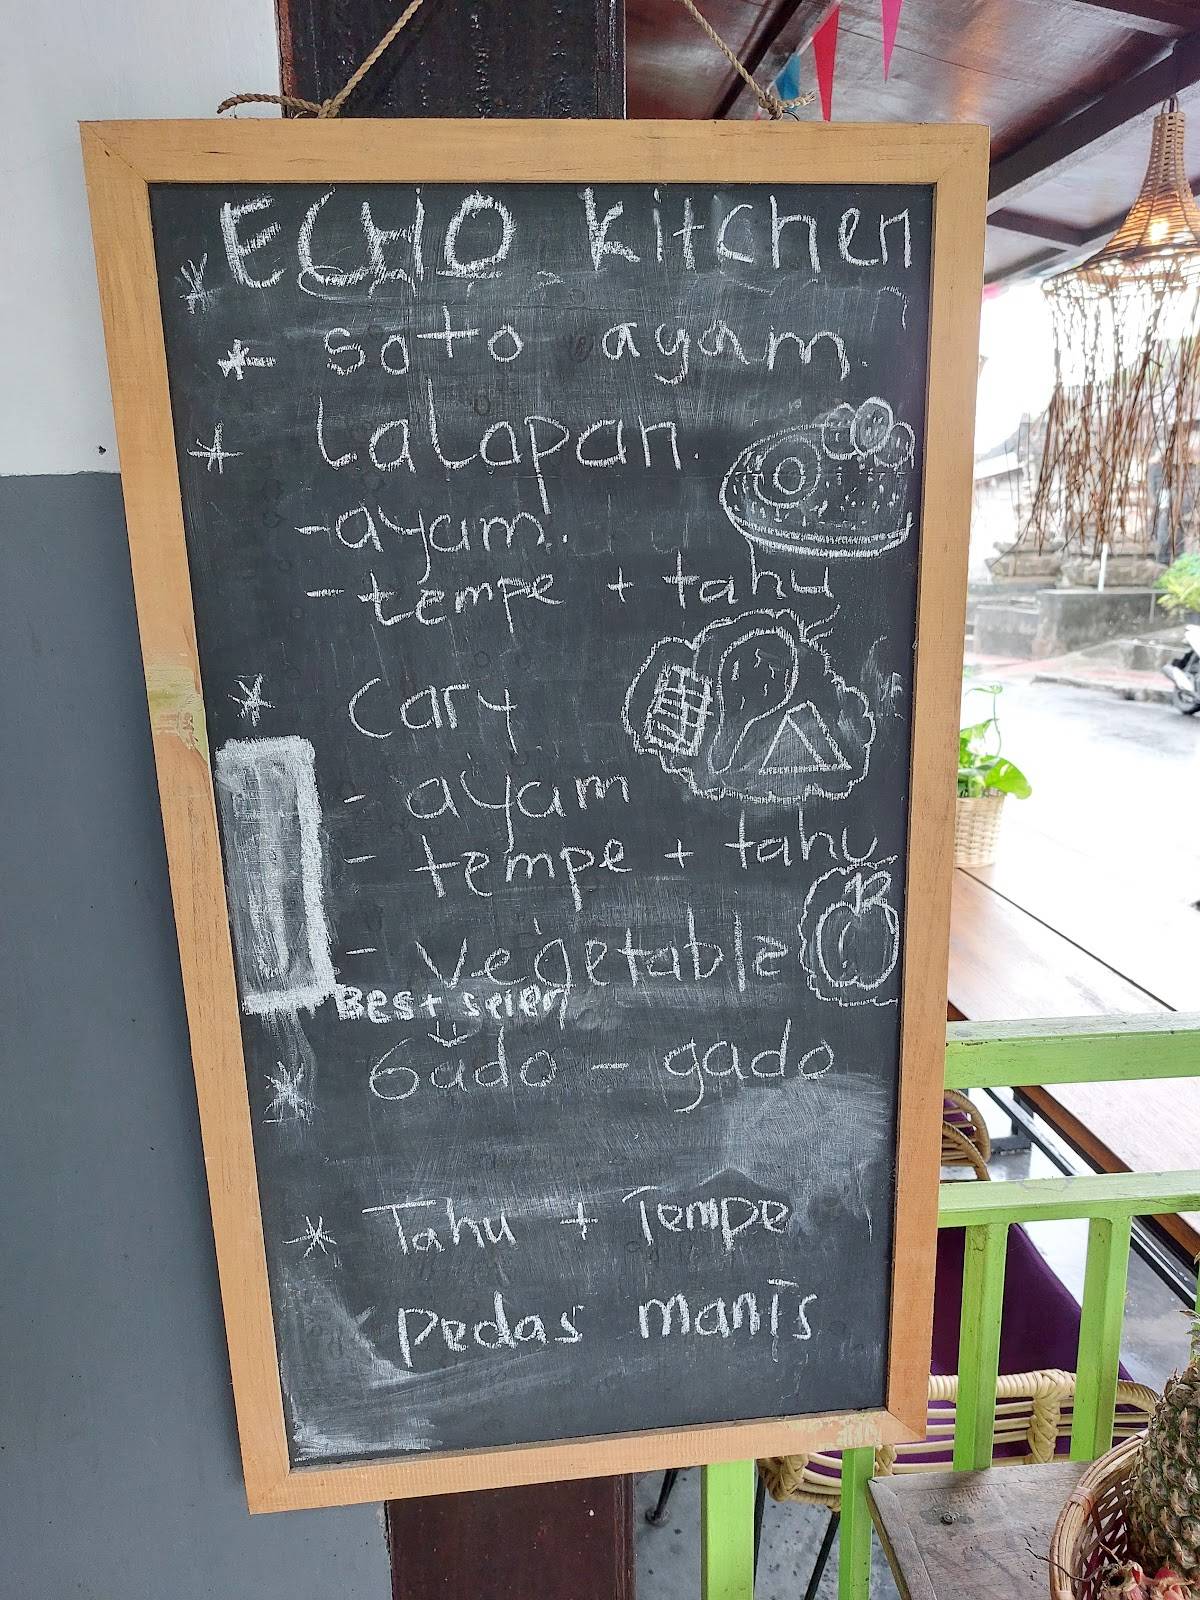 ECHO kitchen
* soto ayam.
* Lalapan.
- ayam.
- tempe + tahu
* Cary
- ayam
- tempe + tahu
- vegetable
Best seler
* Gado - gado
* Tahu + Tempe
pedas manis